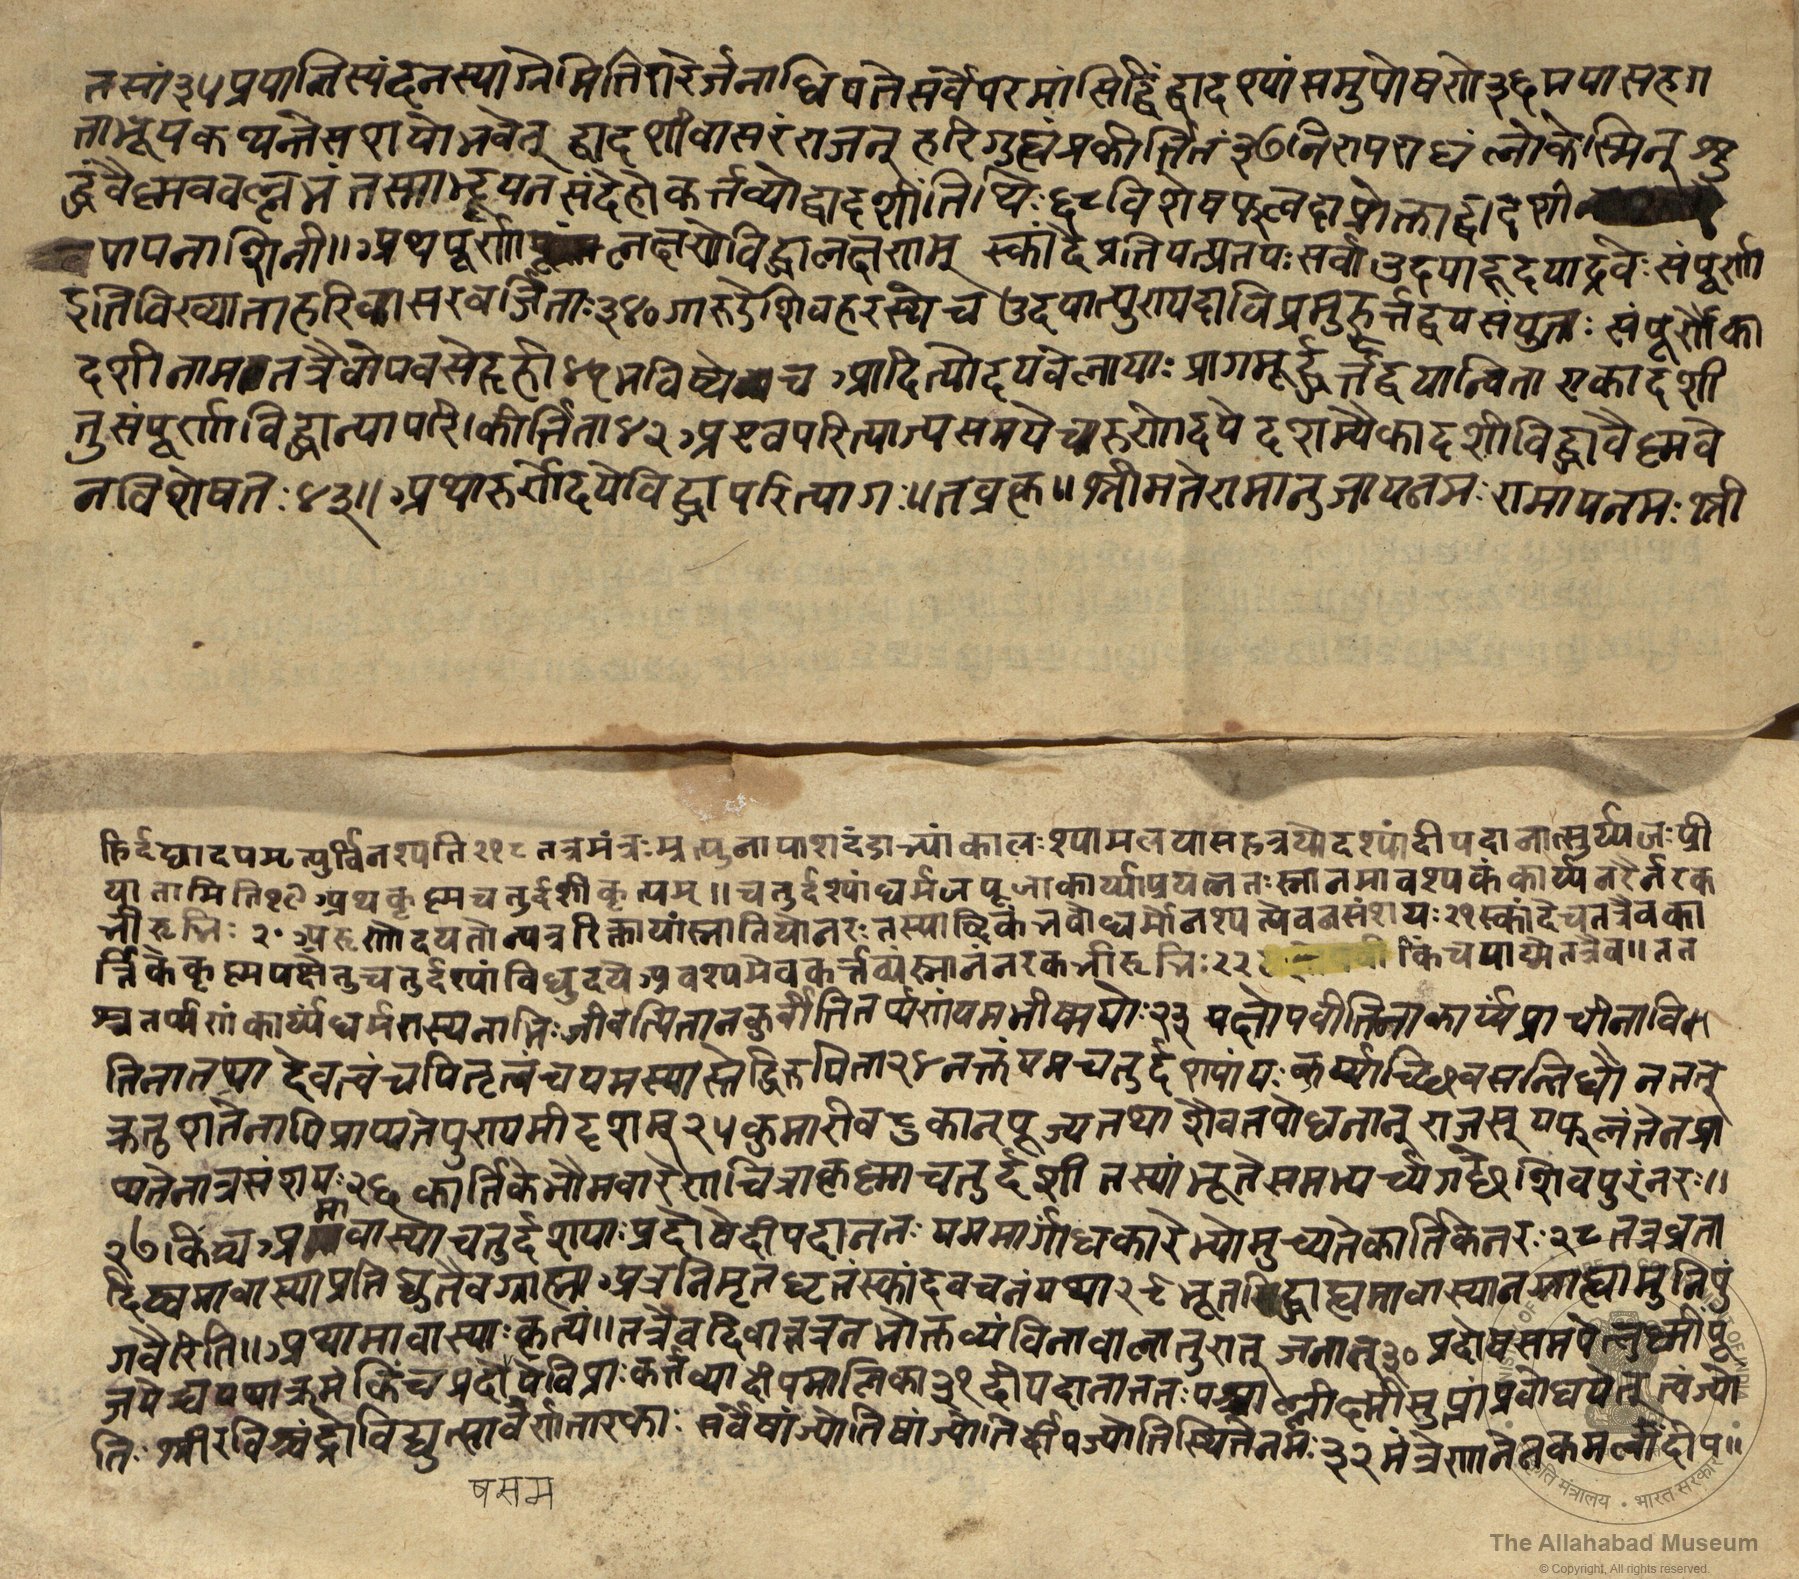 तसां ३५ प्रयान्ति स्यंदनस्याग्नेमिति रारेर्जनाधिपते सर्वेपरमां सिद्धिं द्वादश्यां समुपोषणे ३६ मया सह ग
ता भूप कथ्यन्ते सशयो भवेत् द्वादशीवासरं राजन् हरिगुह्यं प्रकीर्तितं ३७ निरापराधं लोकेस्मिन् शु
द्धं वैष्णववल्लभं तस्माद्भूप न संदेहो कर्त्तव्यो द्वादशीं तिथिः ३८ विशेषफलदा प्रोक्ता द्वादशी
पापनाशिनी॥ अथ पूर्णा लक्षणे विद्धालक्षणम् स्कांदे प्रतिपत्प्रतपः सर्वा उदयादूदयाद्रवेः संपूर्णा
इति विख्याता हरिवासरवर्जिताः ३४० गारुडे शिवहरस्ये च उदयात्पुरा यदा विप्र मुहूर्त्तद्वयसंयुता: संपूर्णैका
दशी नाम तत्रैवोपवसेद्गृही ४१ भविष्ये च आदित्योदयवेलायाः प्राग्मूर्हुर्त्तद्वयान्विता एकादशी
तु संपूर्णा विद्धान्या परिकीर्त्तिता ४२ अएव परित्याज्य समये चारुणोदये दशम्यैकादशी विद्धा वैष्णवे
न विशेषतः ४३॥ अथारुणोदये विद्धा परित्यागः॥ तत्रत्क॥ श्रीमते रामानुजाय नमः रामाय नमः श्री
हिर्दद्यादपमृत्युर्विनश्यति २१८ तत्र मंत्रः मृत्युना पाशदंडाभ्यां कालः श्यामलया सह त्रयोदश्यां दीपदानात्सुर्य्यजः प्री
यातामिति १९ अथ कृष्णचतुर्दशीकृत्यम्॥ चतुर्दश्यां धर्मजपूजा कार्य्या प्रयत्नतः स्नानमावश्यकं कार्य्यं नरैर्नरक
भीरुभिः २० अरुणोदयतोन्यत्र रिक्तायां स्नाति यो नरः तस्याब्दिकंभवो धर्मो नश्यत्येव न संशयः २१ स्कांदे च तत्रैव का
र्त्तिके कृष्णपक्षे तु चतुर्दश्यां विधुदये अवश्यमेव कर्त्तव्यं स्नानं नरकभीरुभिः २२ किंच पाद्मे तत्रैव॥ तत
श्च तर्प्पणं कार्य्यं धर्मराजस्य नामभिः जीवत्पिता न कुर्वीति तर्प्पणं यमभीष्मयोः २३ यज्ञोपवीतिना कार्य्यं प्राचीनावि
तिना तथा देवत्वं च पितृत्वं च यमस्यास्तद्विरूपिता २४ नक्तं यमचतुर्दश्यां यः कुर्य्याच्छिवसन्निधौ न तत्
क्रतुशतेनापि प्राप्यते पुण्यमीदृशम् २५ कुमारीवटुकान् पूज्य तथा शैवतपोधनान् राजसूयफलं तेन प्रा
प्यते नात्र संशयः २६ कार्तिके भौमवारेण चित्रा कृष्णा चतुर्दशी तस्यां भूतेसमभ्यर्च्य गच्छेशिवपुरं नरः॥
२७ किंच अमावास्याचतुर्दश्याः प्रदोषे दीपदानतः यममार्गांधकारेभ्यो मुच्यते कार्तिके नरः २८ तत्र व्रता
दिष्वमावास्या प्रतियुतैव ग्राह्या अत्रनिमृतघृतं स्कांदवचनं यथा २९ भूतविद्धा ह्यमावास्या न ग्राह्या मुनिपुं
गवैरिति॥ अथामावास्याः कृत्यं॥ तत्रैव दिवा तत्र न भोक्तव्यं विना वालातुरात् जनात् ३० प्रदोषसमये लक्ष्मीं पू
जयेच्च यथाक्रमं किंच प्रदोषे विप्राः कर्त्तव्या दीपमालिका ३१ दीपदानात्ततः पश्चाल्लक्ष्मीं सुप्तां प्रवोधयेत् त्वं ज्यो
तिः श्रीरविश्चंद्रो विद्युत्सौवर्णतारकाः सर्वेषां ज्योतिषां ज्योतिर्दीपज्योतिस्थिते नमः ३२ मंत्रेणानेन कमलां दीप॥
ष स म
The Allahabad Museum
© Copyright, All rights reserved.